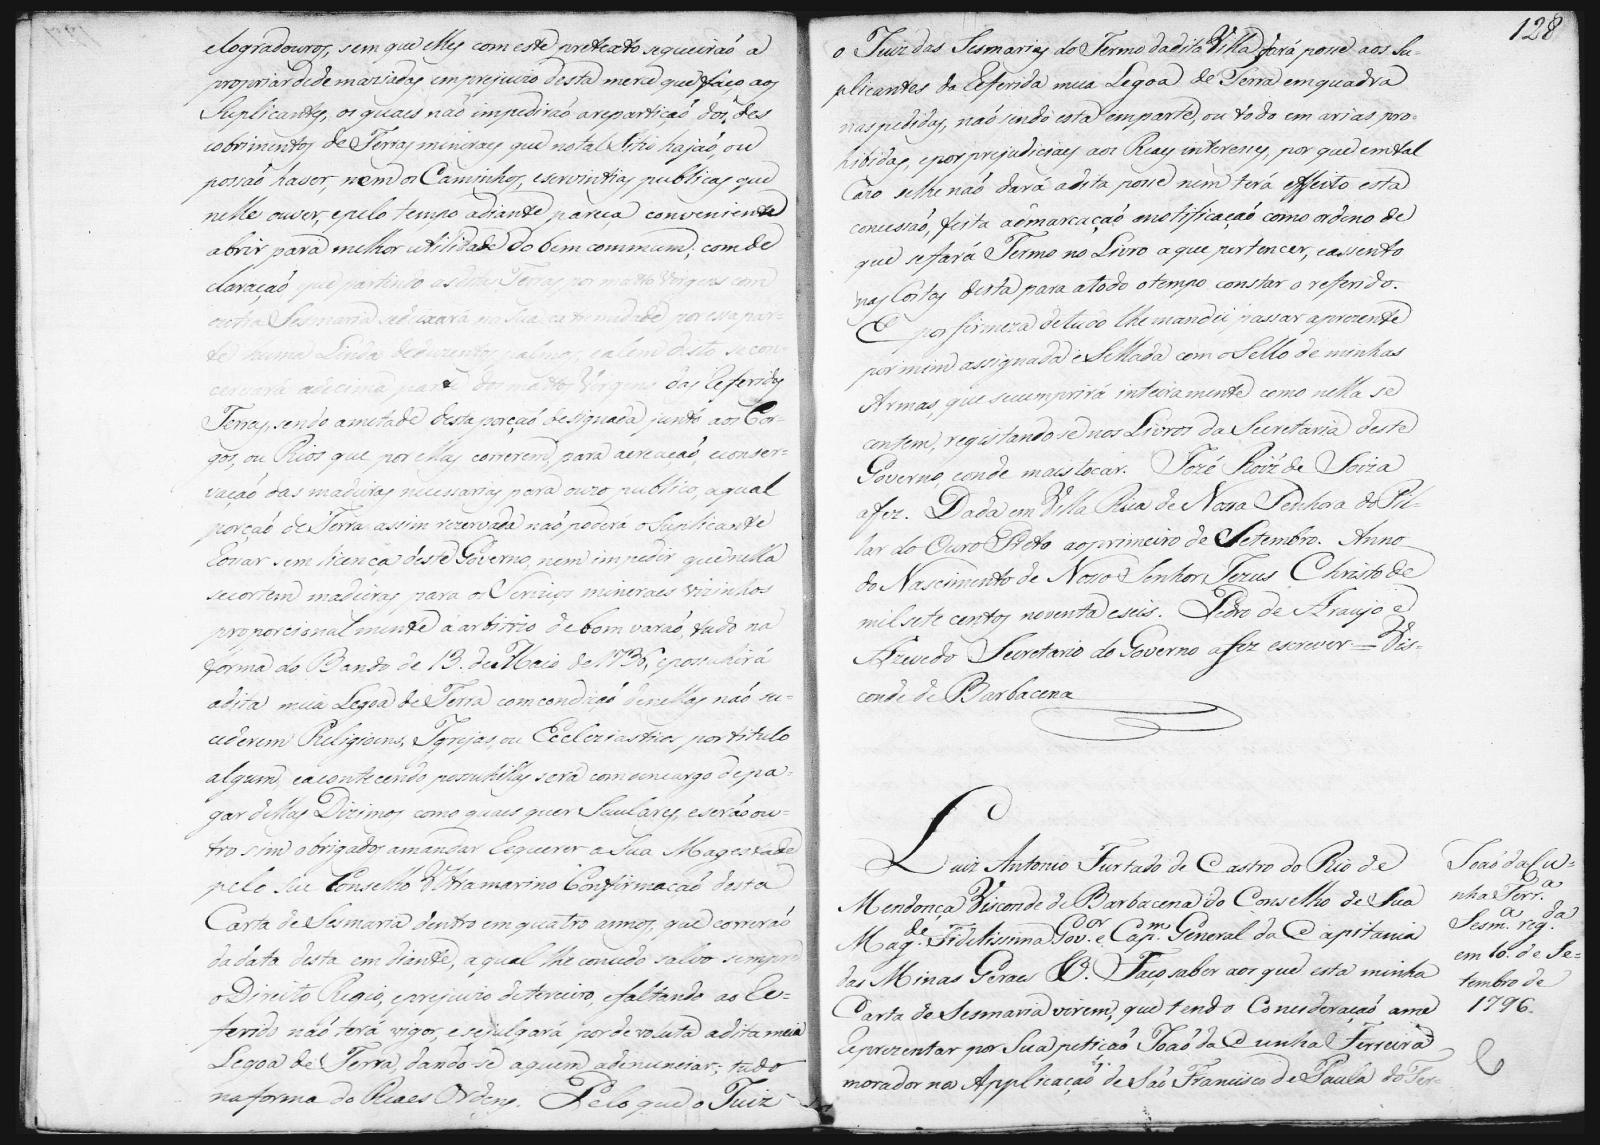 elogradouros, sem que elles com este pretexto se queiraõ a
propriar de demaziadas em prejuizo desta merce que faço aos
Suplicantes, os quaes naõ impediraõ a repartiçaõ dos des
cobrimentos de Terras mineraes que no tal Sitio hajaõ, ou
possaõ haver, nem os Caminhos, e serventias publicas que
nelle ouver, e pelo tempo adiante pareça conveniente
abrir para melhor utilidade do bem commum; com de
claraçaõ que partindo as ditas Terras por matto Virgens com
outra Sesmaria se deixará na sua extremidade por essa par-
te huma Linda de duzentos palmos, e alem disto se con-
cervará a decima parte dos mattos Virgens das referidas
Terras, sendo a metade desta porçaõ designada junto aos Cor-
gos, ou Rios que por ellas correrem, para a creaçaõ, e conser-
vaçaõ das madeiras necessarias para o uzo publico, a qual
porçaõ de Terra assim rezervada naõ poderá o Suplicante
Roçar sem licença deste Governo, nem impedir que nella
se cortem madeiras para os Serviços mineraes vizinhos
proporcionalmente a arbitrio de bom varaõ, tudo na
forma do Bando de 13. de Maio de 1736, e possuhirá
a dita meia Legoa de Terra com condiçaõ de nellas naõ su-
cederem Religioens, Igrejas, ou Ecclesiasticos por titulo
algum, e acontecendo possuhillas será com o encargo de pa-
gar dellas Dizimos como quaes quer Seculares, e seráõ ou-
tro sim obrigados a mandar Requerer a Sua Magestade
pelo seu Conselho Ultramarino Confirmaçaõ desta
Carta de Sesmaria dentro em quatro annos, que correráõ
da data desta em diante, a qual lhe concedo salvo sempre
o Direito Regio, e prejuizo de terceiro, e faltando ao Re-
ferido naõ terá vigor, e se julgará por devoluta a dita meia
Legoa de Terra, dando-se a quem a denunciar; tudo
na forma das Reaes Ordens. Pelo que o Juiz
128
o Juiz das Sesmarias do Termo da dita Villa fará posse aos Su-
plicantes da Referida meia Legoa de Terra em quadra
nas pedidas, naõ sendo esta em parte, ou todo em arias pro-
hibidas, e por prejudiciaes aos Reaes interesses, por que em tal
Cazo se lhe naõ dará a dita posse nem terá effeito esta
concessaõ, feita a demarcaçaõ e notificaçaõ como ordeno de
que se fará Termo no Livro a que pertencer, e assento
nas Costas desta para a todo o tempo constar o referido.
E por firmeza de tudo lhe mandei passar a prezente
por mim assignada e Sellada com o Sello de minhas
Armas, que se cumprirá inteiramente como nella se
contem, registando-se nos Livros da Secretaria deste
Governo, e onde mais tocar. Jozé Roiz' de Soiza
a fez. Dada em Villa Rica de Nossa Senhora do Pi-
lar do Ouro Preto ao primeiro de Setembro. Anno
do Nascimento de Nosso Senhor Jezus Christo de
mil sete centos noventa e seis. Pedro de Araujo e
Azevedo Secretario do Governo a fez escrever = Vis-
conde de Barbacena
Luiz Antonio Furtado de Castro do Rio de
Mendonca Visconde de Barbacena do Conselho de Sua
Mag.de Fidelissima Gov.or e Cap.m General da Capitania
das Minas Geraes &.a Faço saber aos que esta minha
Carta de Sesmaria virem, que tendo Consideraçaõ ame
Reprezentar por Sua petiçaõ Joaõ da Cunha Ferreira
morador na Applicaçaõ de Saõ Francisco de Paula do Ter-
Joaõ da Cu-
nha Ferr.a
Sesm.a reg.da
em 10. de Se-
tembro de
1796.